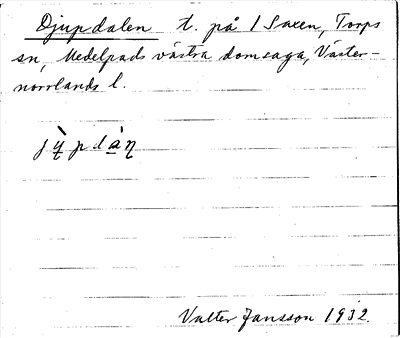 Djupdalen t. på 1 Saxen, Torps
sn, Medelpads västra domsaga, Väster-
norrlands l.
Valter Jansson 1932.